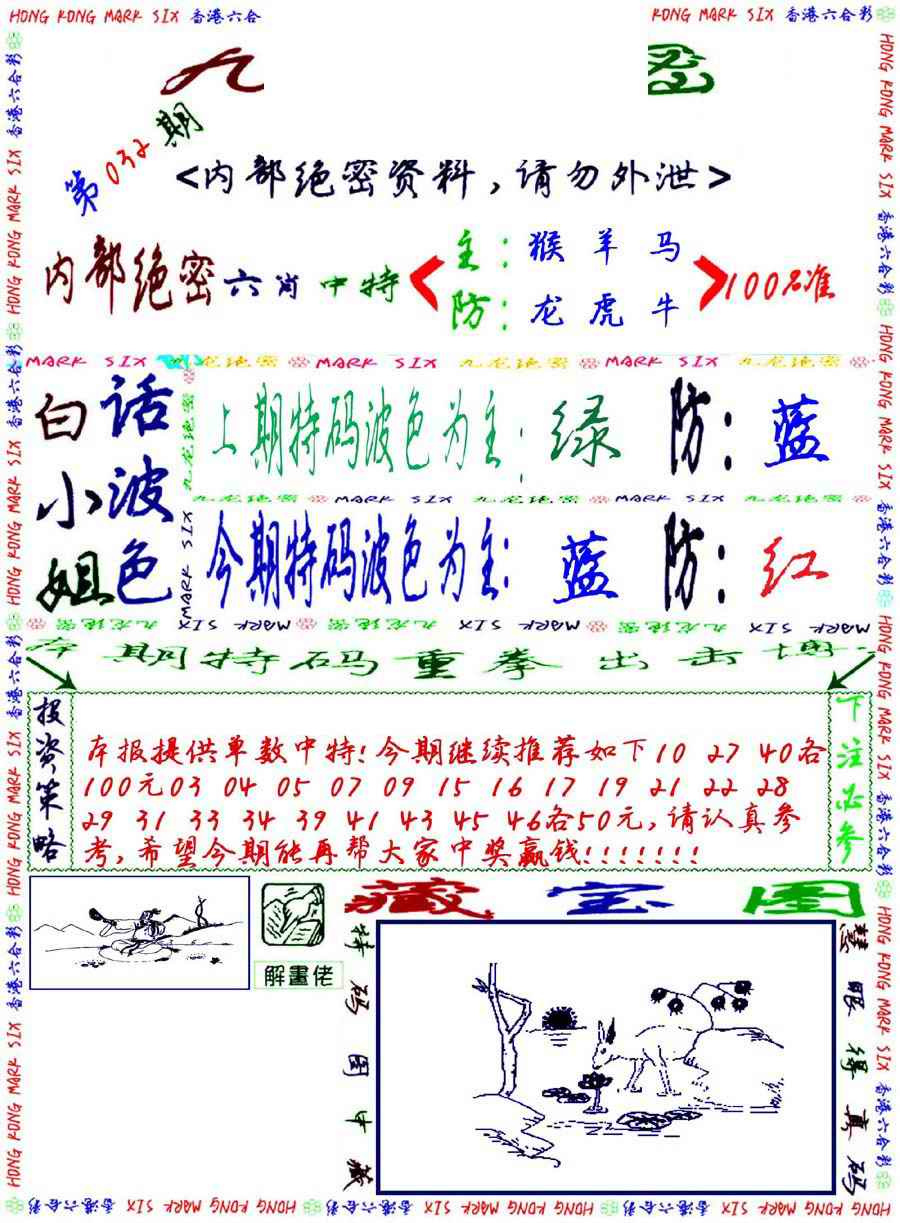 HONG KONG MARK SIX 香港六合
HONG KONG MARK SIX 香港六合彩
九
第032期
<内部绝密资料,请勿外泄>
内部绝密六肖中特
主:猴羊马
防:龙虎牛
100%准
MARK SIX 九龙绝密 MARK SIX 九龙绝密 MARK SIX 九龙绝密
白话小波姐色
上期特码波色为主:绿 防:蓝
九龙绝密 MARK SIX 九龙绝密 MARK SIX 九龙绝密
今期特码波色为主:蓝 防:红
本期特码重拳出击
投资策略
本报提供单数中特!今期继续推荐如下10 27 40各
100元03 04 05 07 09 15 16 17 19 21 22 28
29 31 33 34 39 41 43 45 46各50元,请认真参
考,希望今期能再帮大家中奖赢钱!!!!!!!
下注必参
解畫佬
藏宝图
特码图中藏
慧眼得真码